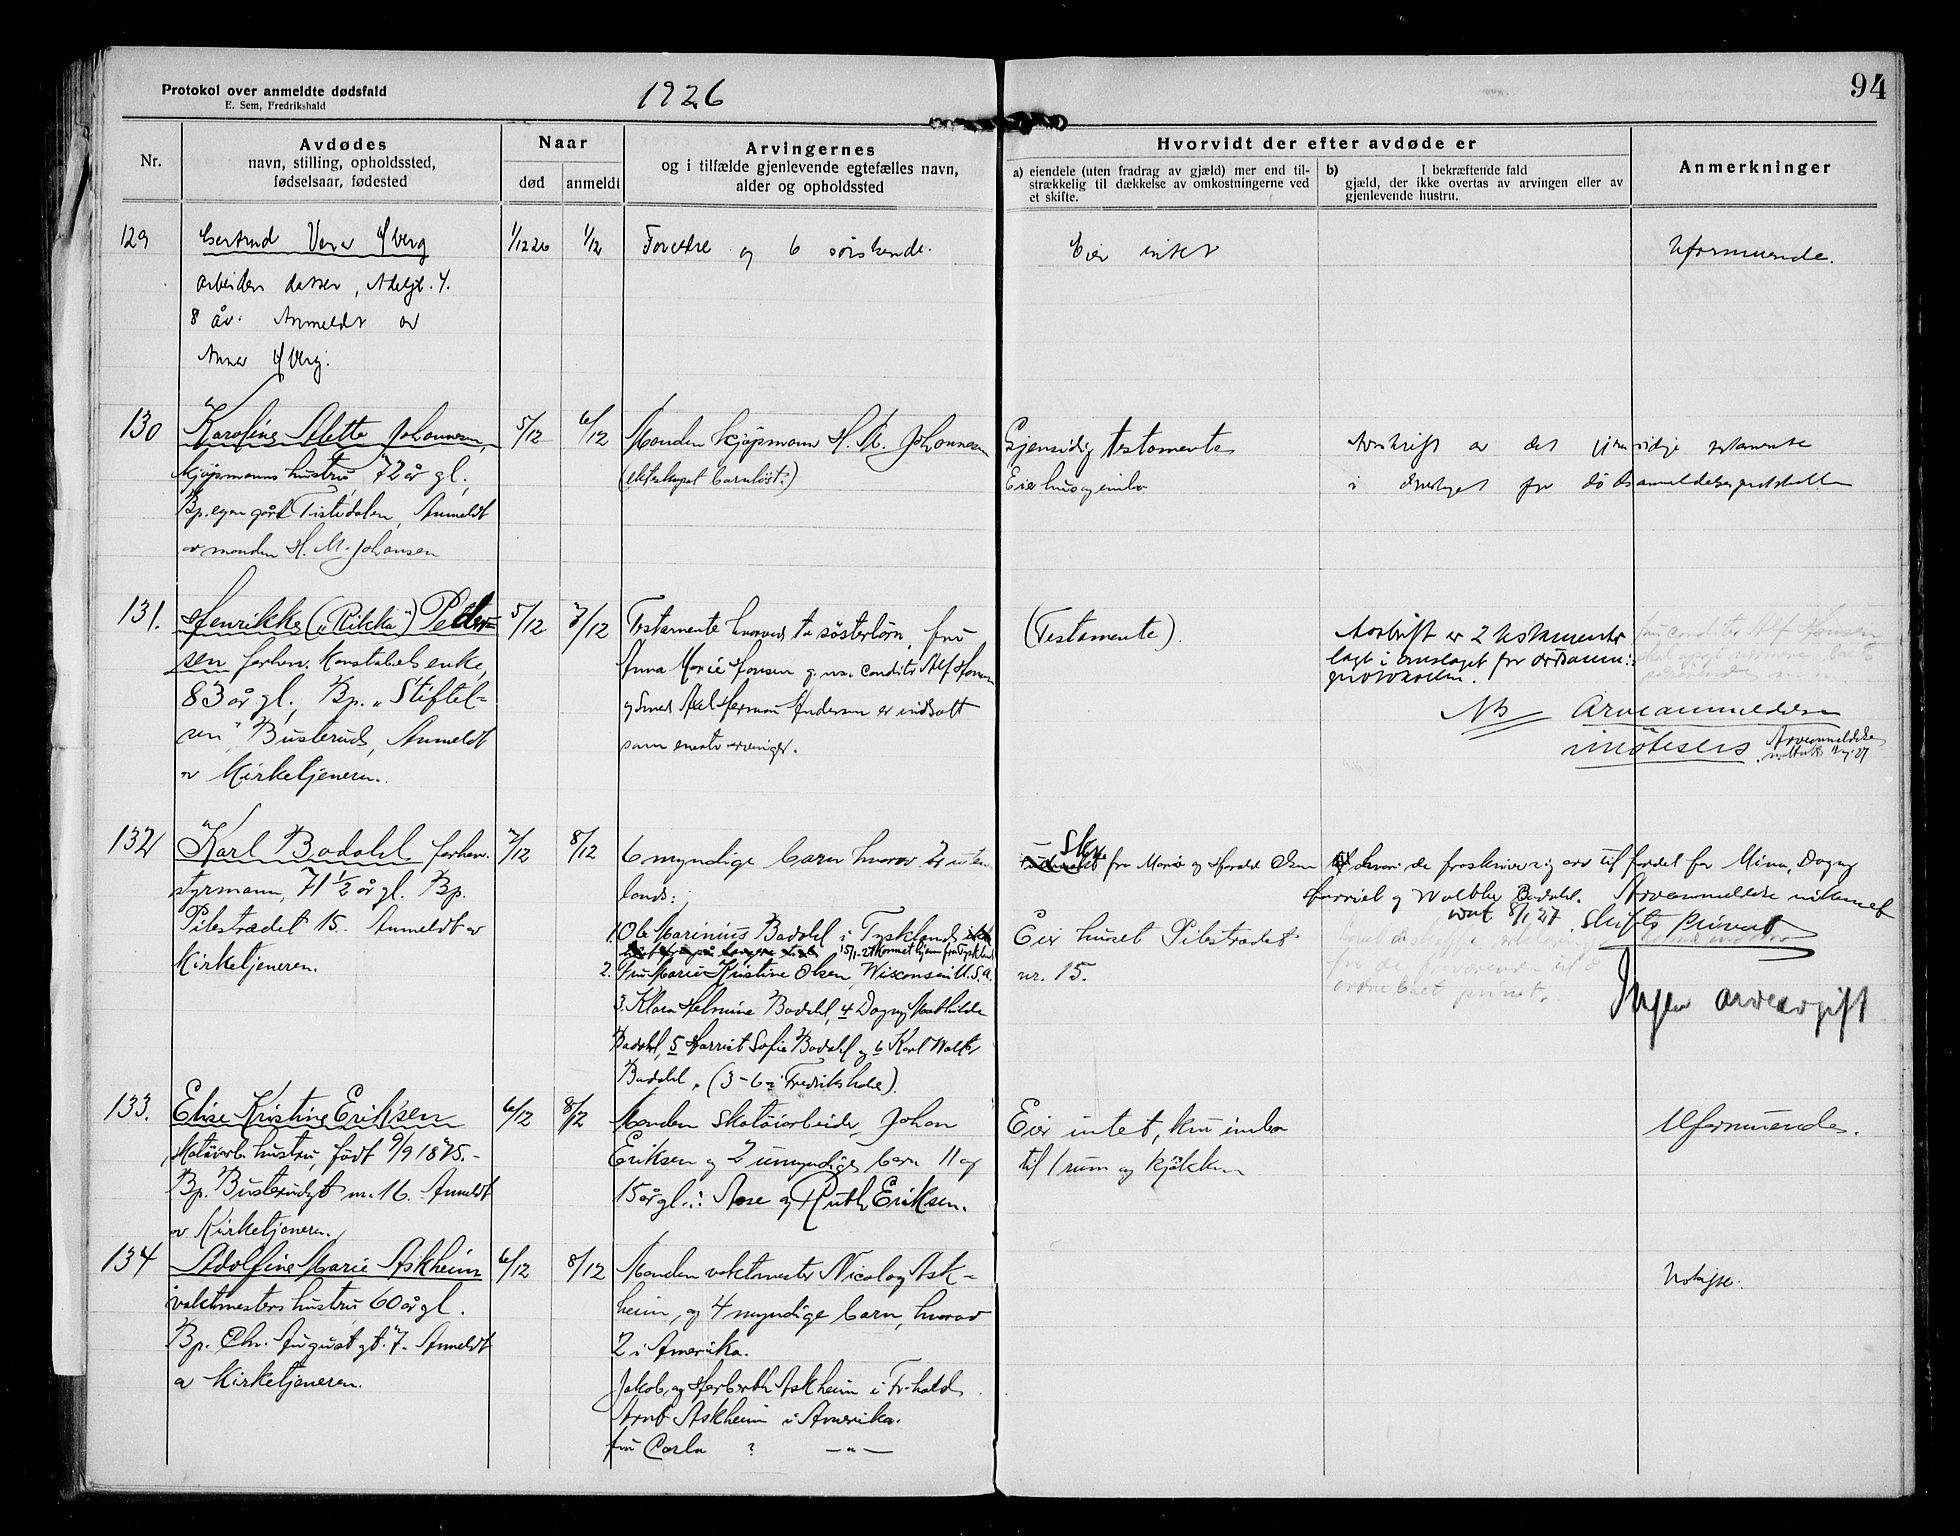 Protokol over anmeldte dødsfald
E. Sem, Fredrikshald
1926
94
Nr.
Avdødes
navn, stilling, opholdssted,
fødselsaar, fødested
Naar
død
anmeldt
Arvingernes
og i tilfælde gjenlevende egtefælles navn,
alder og opholdssted
Hvorvidt der efter avdøde er
a) eiendele (uten fradrag av gjæld) mer end til-
strækkelig til dækkelse av omkostningerne ved
et skifte.
b) I bekræftende fald
gjæld, der ikke overtas av arvingen eller av
gjenlevende hustru.
Anmerkninger
129
Gertrud
1/12 26
1/12
Foreldre og 6 søskende.
Eier intet
Uformuende.
arbeider datter, Adelgt. 4.
8 år. Anmeldt av
Anna
130
Karoline Alette Johannesen,
5/12
6/12
Manden kjøpmann H. M. Johannesen
Gjensidig testamente
Avskrift av det gjensidige testamente
kjøpmanns hustru 72 år gl.,
(ekteskapet barnløst.)
Eier hus og indbo
i omslaget for dødsanmeldelsesprotokollen
Bp. egen gård Tistedalen, Anmeldt
av manden H. M. Johansen
131.
Henrikke ("Rikka") Peder-
5/12
7/12
Testamente hvorved to søsterbørn, fru
(Testamente).
Avskrift av 2 testamenter
sen forhen. Konstabels enke,
Anna Marie Hansen g. m. conditor Alf Hansen
lagt i omslaget for dødsanm.-
protokollen.
83 år gl., Bp. "Stiftel-
og Smed Axel Herman Andersen er indsatt
NB Arveanmeldelse
sen", Busterud, Anmeldt
som eneste arvinger.
imøtesees
Arveanmeldelse
av Kirketjeneren.
132
Karl Bodahl forhen.
7/12
8/12
6 myndige barn hvorav 2 uten-
Skr. fra Marie og Harald Olsen
hvori de fraskriver sig arv til fordel for Mina, Dagny
styrmann, 71 1/2 år gl. Bp.
lands:
Harriet og Walther Bodahl. Arveanmeldelse
Pilestrædet 15. Anmeldt av
1. Ole Marinius Bodahl i Tyskland
Eier huset Pilestrædet
8/1 27. Skifts privat
15/1-27 kommet hjem fra Tyskland
Kirketjeneren.
2. Fru Marie Kristine Olsen, Wisconsin U.S.A.
nr. 15.
3. Klara Helmine Bodahl, 4 Dagny Mathilde
Ingen arveavgift
Bodahl, 5 Harriet Sofie Bodahl og 6 Karl Walth.
Bodahl, (3-6 i Fredrikshald).
133.
Elise Kristine Eriksen
6/12
8/12
Manden skotøiarbeider Johan
Eier intet, kun indbo
Uformuende.
skotøiarb. hustru, født 9/9 1875.-
Eriksen og 2 umyndige barn 11 og
til 1 rum og kjøkken
Bp. Busterudgt nr. 16. Anmeldt
15 år gl.: Aase og Ruth Eriksen.
av Kirketjeneren.
134
Adolfine Marie Askheim
6/12
8/12
Manden vaktmester Nicolay Ask-
vaktmesters hustru 60 år gl.
heim, og 4 myndige barn, hvorav
Bp. Chr. August gt. 7. Anmeldt
2 i Amerika.
av Kirketjeneren.
Jakob, og Herberth Askheim i Fr.hald
Arnt Askheim i Amerika.
fru Carla ? —"—